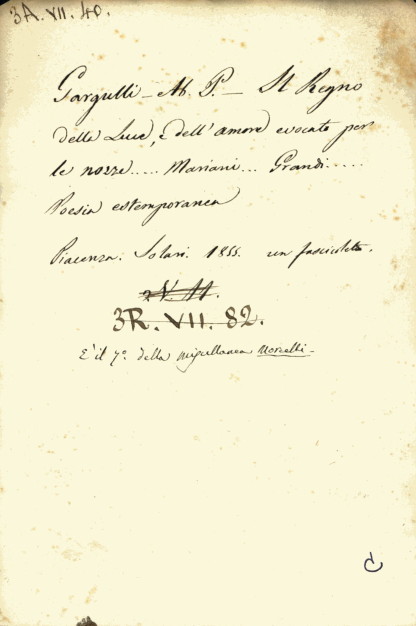 3A. VII. 40.
Gargulli – Ab. P. – Il Regno
della Luce, e dell'amore evocato per
le nozze .... Mariani ... Grandi .....
Poesia estemporanea
Piacenza. Solari. 1855. un fascicoletto.
3R. VII. 82.
È il 7º della miscellanea